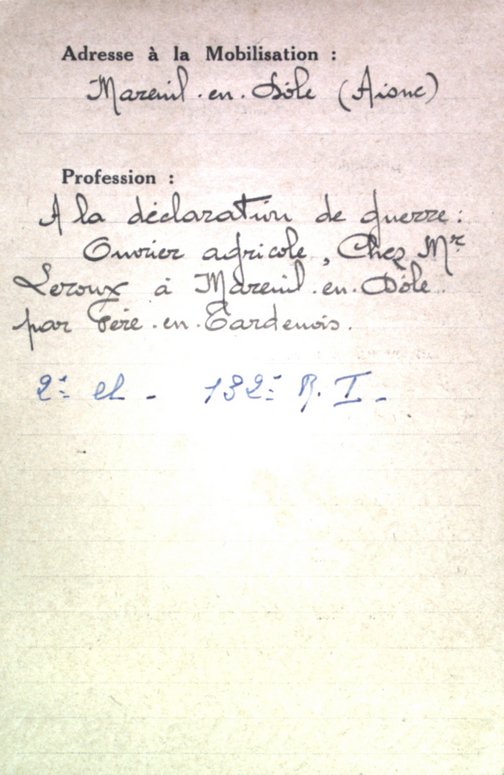 Adresse à la Mobilisation :
Mareuil-en-Dôle (Aisne)
Profession :
A la déclaration de guerre :
Ouvrier agricole, Chez Mr
Leroux à Mareuil-en-Dôle
par Fère-en-Tardenois.
2e cl - 132e R.I-